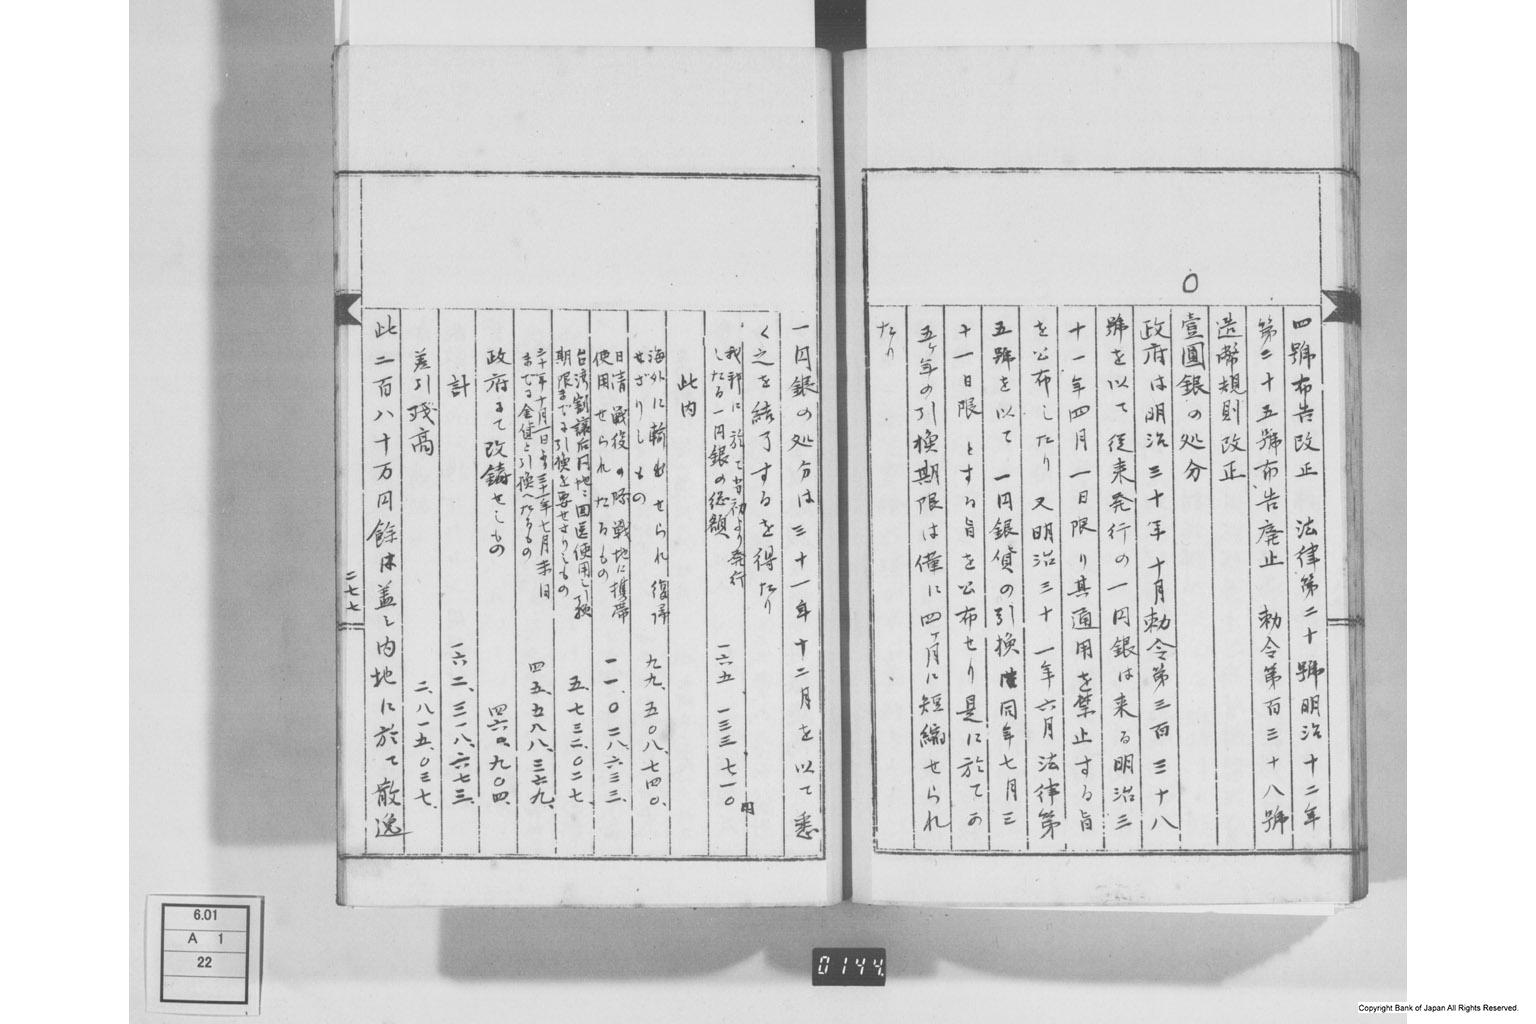 四號布告改正　法律第二十號明治十二年
第二十五號布告廃止　勅令第百三十八號
造幣規則改正
○
壹圓銀の処分
政府は明治三十年十月勅令第三百三十八
號を以て従来発行の一円銀は来る明治三
十一年四月一日限り其通用を禁止する旨
を公布したり又明治三十一年六月法律第
五號を以て一円銀貨の引換 同年七月三
十一日限とする旨を公布せり是に於て
五ヶ年の引換期限は僅に四ヶ月に短縮せられ
たり
一円銀の処分は三十一年十二月を以て悉
く之を結了するを得たり
我邦に於て当初より発行
したる一円銀の総額　一六五　一三三　七一〇円
此内
海外に輸出せられ復帰
せざりしもの　九九、五〇八、七四〇、
日清戦役の際戦地に携帯
使用せられたるもの　一一、〇二八、六三三、
台湾割譲后同地 使用し引換
期限までに引換を要せざりしもの　五、七三二、〇二七、
三十年十月一日より三十一年七月末日
までに金貨と引換へたるもの　四五、五八八、三六九、
政府にて改鋳せしもの　四六〇、九〇四、
計　一六二、三一八、六七三、
差引残高　二、八一五、〇三七、
此二百八十万円餘は蓋し内地に於て散逸
二七七
6.01
A 1
22
0144
Copyright Bank of Japan All Rights Reserved.